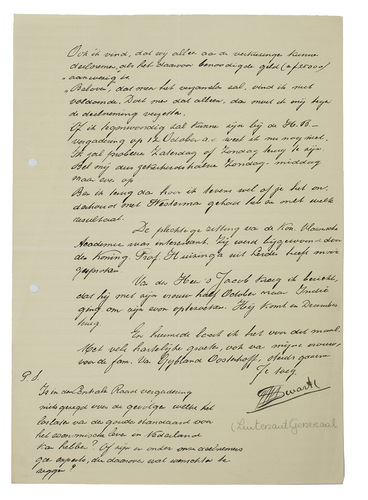 Ook ik vind, dat wij allen aan de verkiezinge kunnen
deelnemen, als het daarvoor benoodigde geld (± f 2500)
aanwezig is
Beloven, dat over het jaar zal, vind ik niet
voldoende. Doet men dat alleen, dan moet ik mij tegen
de deelneming verzetten.
Of ik tegenwoordig zal kunnen zijn bij de H.B.-
vergadering op 12 October a.s. weet ik nu nog niet.
Ik zal probeere Zaterdag of Zondag terug te zijn
Bel mij den Zondag-middag
maar even op
Ben ik terug dan hoor ik tevens wel of je het on-
derhoud met Westerman gehad hebt en met welk
resultaat.
De plechtige zitting van de Kon. Vlaamsche
Academie was interessant. Zij werd bijgewoond door
de Koning. Prof. Huizinga uit Leiden heeft mooi
gesproken
Van der Heer s' Jacob kreeg ik bericht,
dat hij met zijn vrouw half October naar Indië
ging om zijn zoon op te zoeken. Hij komt en December
terug.
En hiermede laat ik het voor dit maal.
Met vele hartelijke groeten, ook van mijne vrouw,
voor de fam. Van Eybland Oosterhoff, steeds gaarne
Je toeg.
Swart
(Luitenant Generaal
P.S.
Is in den Centrale Raad vergadering
iets gezegd over de gevolgen welke het
loslaten van de gouden standaard voor
het economische leven in Nederland
kan hebben? Of zijn er onder onze deelnemers
geen experts, die daarover wat wenschten te
zeggen?